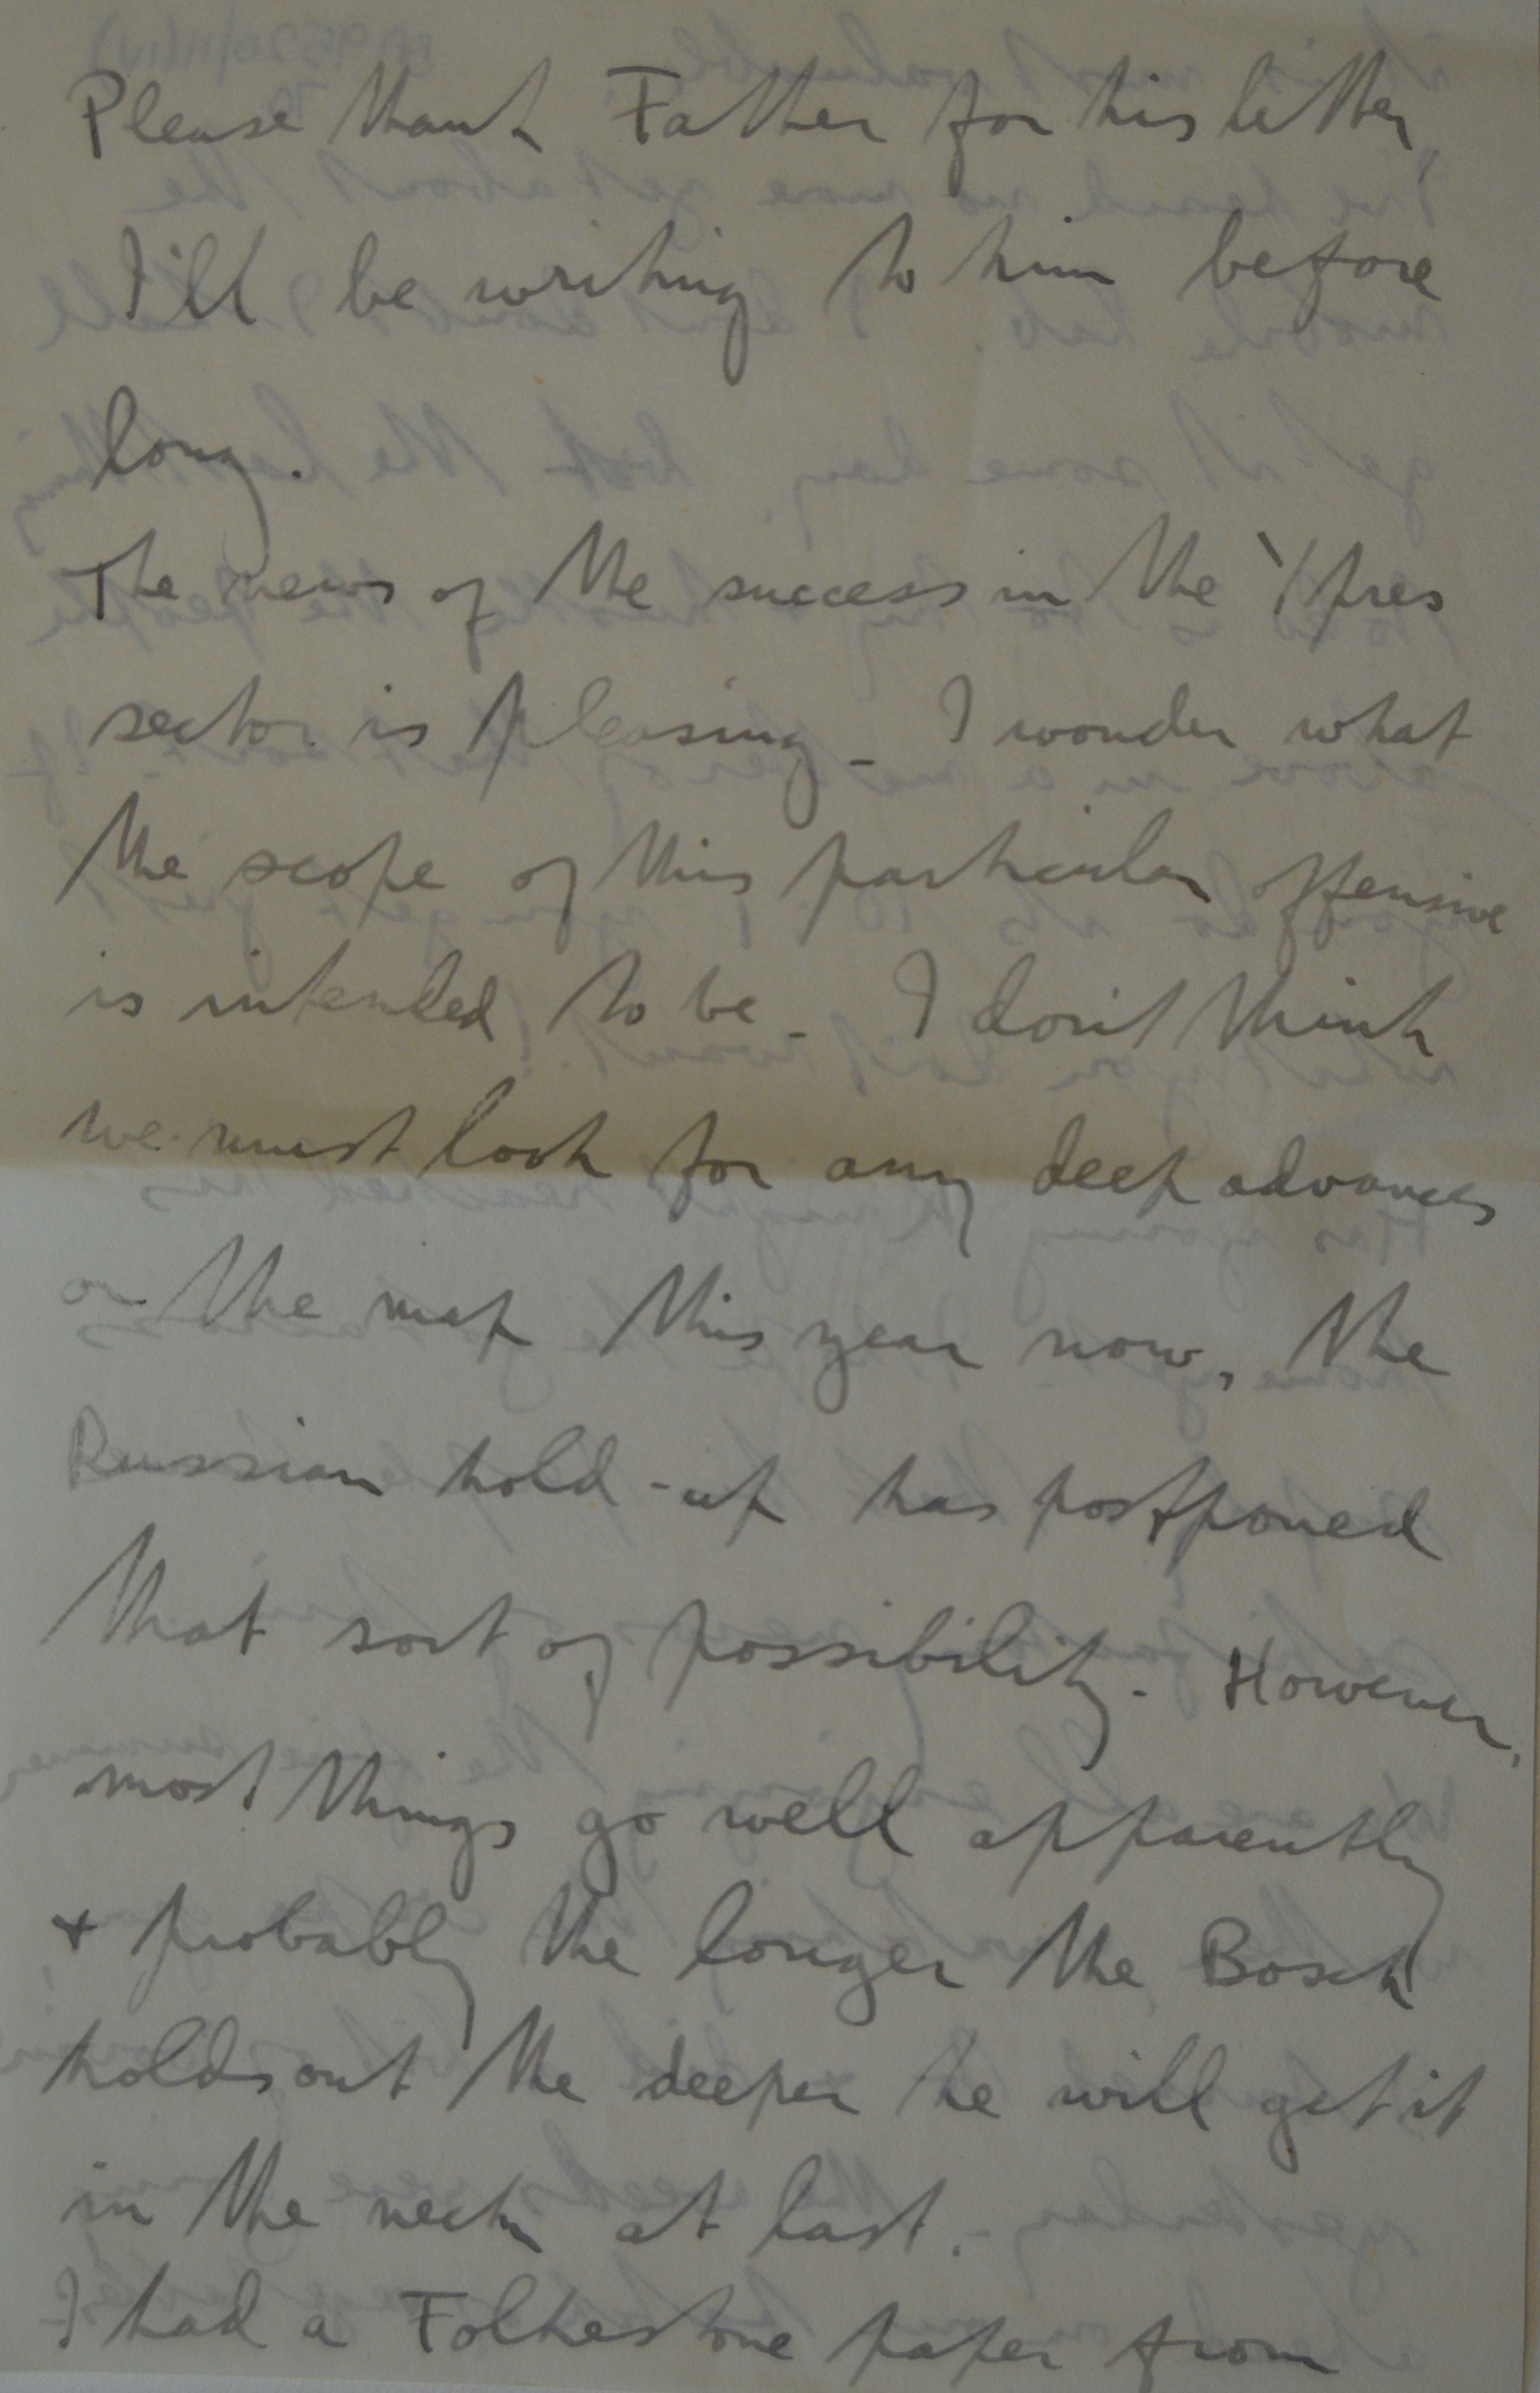 Please thank Father for his letter,
I'll be writing to him before
long.
The news of the success in the Ypres
sector is pleasing - I wonder what
the scope of this particular offensive
is intended to be - I don't think
we must look for any deep advances
on the map this year now, the
Russian hold-up has postponed
that sort of possibility. However,
most things go well apparently
+ probably the longer the Bosch
holds out the deeper he will get it
in the neck at last.
I had a Folkestone paper from